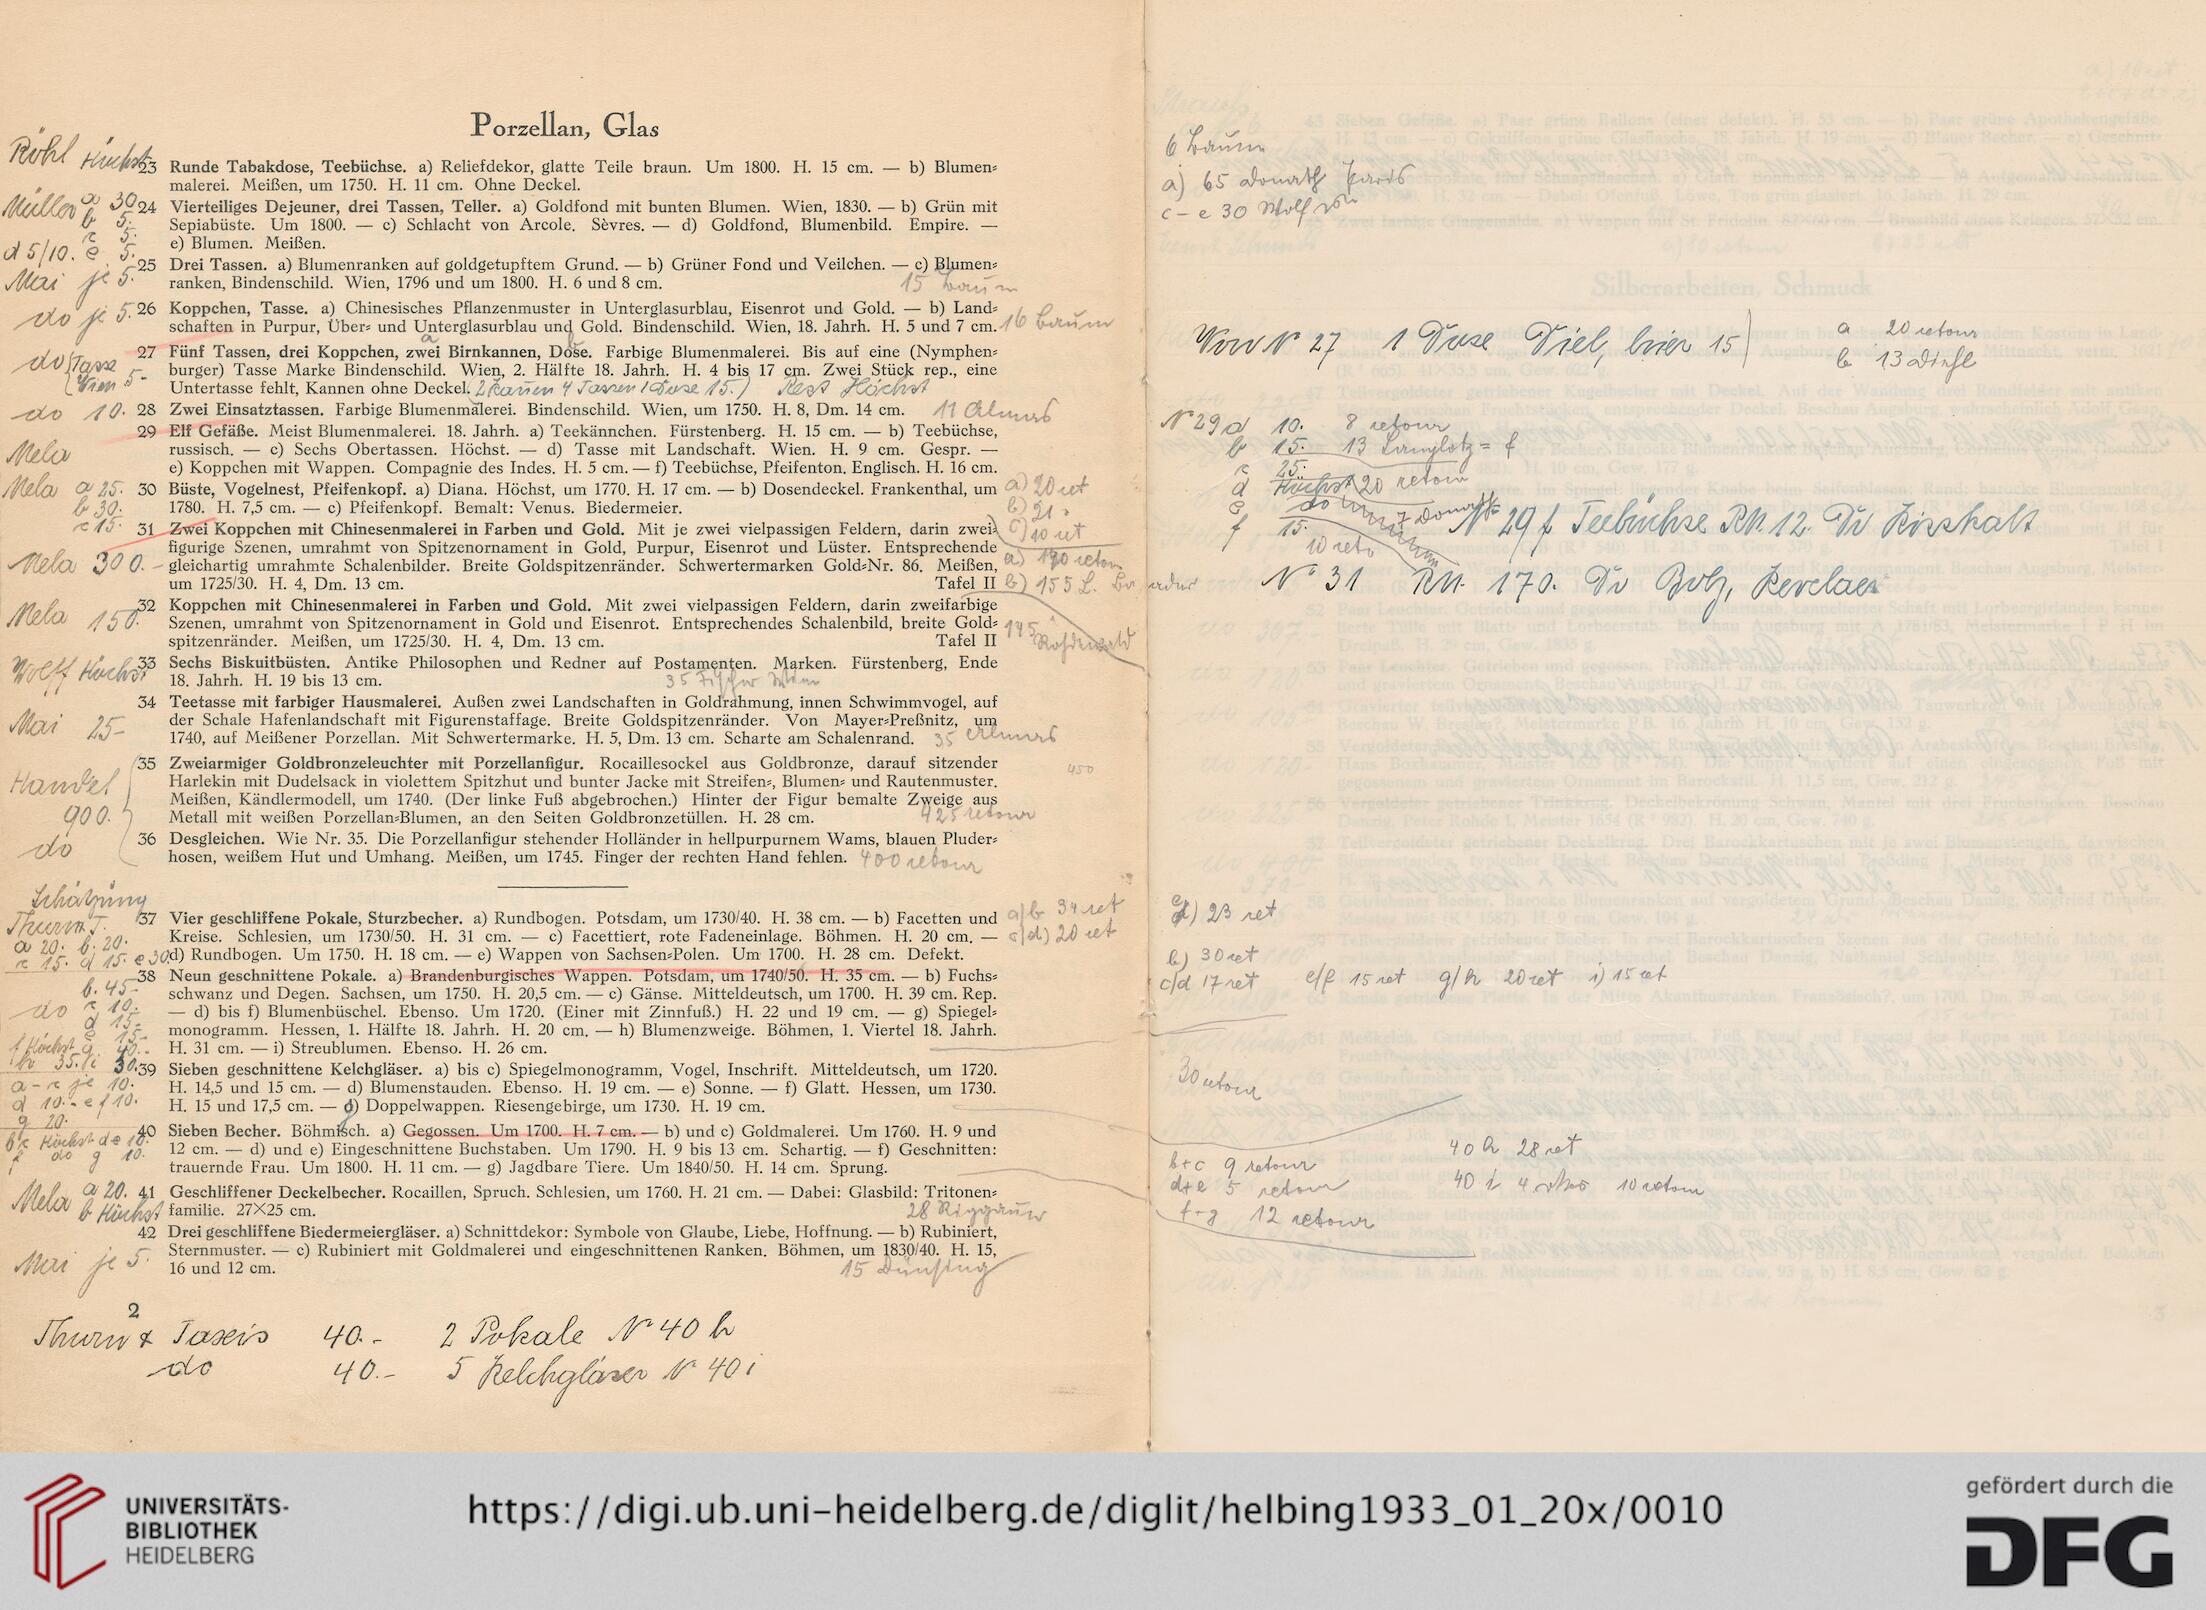 Porzellan, Glas
Röhl Höchst
23 Runde Tabakdose, Teebüchse. a) Reliefdekor, glatte Teile braun. Um 1800. H. 15 cm. — b) Blumen-
malerei. Meißen, um 1750. H. 11 cm. Ohne Deckel.
Müller a 30
b 5.
c 5.
d 5/10. e 5.
24 Vierteiliges Dejeuner, drei Tassen, Teller. a) Goldfond mit bunten Blumen. Wien, 1830. — b) Grün mit
Sepiabüste. Um 1800. — c) Schlacht von Arcole. Sèvres. — d) Goldfond, Blumenbild. Empire. —
e) Blumen. Meißen.
Mai je 5.
25 Drei Tassen. a) Blumenranken auf goldgetupftem Grund. — b) Grüner Fond und Veilchen. — c) Blumen-
ranken, Bindenschild. Wien, 1796 und um 1800. H. 6 und 8 cm. 15 Baum
do je 5.
26 Koppchen, Tasse. a) Chinesisches Pflanzenmuster in Unterglasurblau, Eisenrot und Gold. — b) Land-
schaften in Purpur, Über- und Unterglasurblau und Gold. Bindenschild. Wien, 18. Jahrh. H. 5 und 7 cm. 16 Baum
do Tasse
Wien 5-
27 Fünf Tassen, drei Koppchen, zwei Birnkannen, Dose. Farbige Blumenmalerei. Bis auf eine (Nymphen-
burger) Tasse Marke Bindenschild. Wien, 2. Hälfte 18. Jahrh. H. 4 bis 17 cm. Zwei Stück rep., eine
Untertasse fehlt, Kannen ohne Deckel. (2 Kannen 4 Tassen 1 Dose 15.) Rest Höchst
do 10.
28 Zwei Einsatztassen. Farbige Blumenmalerei. Bindenschild. Wien, um 1750. H. 8, Dm. 14 cm. 11 Almas
Mela
29 Elf Gefäße. Meist Blumenmalerei. 18. Jahrh. a) Teekännchen. Fürstenberg. H. 15 cm. — b) Teebüchse,
russisch. — c) Sechs Obertassen. Höchst. — d) Tasse mit Landschaft. Wien. H. 9 cm. Gespr. —
e) Koppchen mit Wappen. Compagnie des Indes. H. 5 cm. — f) Teebüchse, Pfeifenton. Englisch. H. 16 cm.
Mela a 25.
b 30.
c 15.
30 Büste, Vogelnest, Pfeifenkopf. a) Diana. Höchst, um 1770. H. 17 cm. — b) Dosendeckel. Frankenthal, um
1780. H. 7,5 cm. — c) Pfeifenkopf. Bemalt: Venus. Biedermeier.
a) 20 ret
b) 21
c) 10 ret
Mela 300.-
31 Zwei Koppchen mit Chinesenmalerei in Farben und Gold. Mit je zwei vielpassigen Feldern, darin zwei-
figurige Szenen, umrahmt von Spitzenornament in Gold, Purpur, Eisenrot und Lüster. Entsprechende
gleichartig umrahmte Schalenbilder. Breite Goldspitzenränder. Schwertermarken Gold-Nr. 86. Meißen,
um 1725/30. H. 4, Dm. 13 cm. Tafel II
a) 190 retour
b) 155
Mela 150.
32 Koppchen mit Chinesenmalerei in Farben und Gold. Mit zwei vielpassigen Feldern, darin zweifarbige
Szenen, umrahmt von Spitzenornament in Gold und Eisenrot. Entsprechendes Schalenbild, breite Gold-
spitzenränder. Meißen, um 1725/30. H. 4, Dm. 13 cm. Tafel II
Wolff Höchst
33 Sechs Biskuitbüsten. Antike Philosophen und Redner auf Postamenten. Marken. Fürstenberg, Ende
18. Jahrh. H. 19 bis 13 cm. 35 Fischer Wien
Mai 25-
34 Teetasse mit farbiger Hausmalerei. Außen zwei Landschaften in Goldrahmung, innen Schwimmvogel, auf
der Schale Hafenlandschaft mit Figurenstaffage. Breite Goldspitzenränder. Von Mayer-Preßnitz, um
1740, auf Meißener Porzellan. Mit Schwertermarke. H. 5, Dm. 13 cm. Scharte am Schalenrand. 35 Almas
Handel
900.
do
35 Zweiarmiger Goldbronzeleuchter mit Porzellanfigur. Rocaillesockel aus Goldbronze, darauf sitzender
Harlekin mit Dudelsack in violettem Spitzhut und bunter Jacke mit Streifen-, Blumen- und Rautenmuster.
Meißen, Kändlermodell, um 1740. (Der linke Fuß abgebrochen.) Hinter der Figur bemalte Zweige aus
Metall mit weißen Porzellan-Blumen, an den Seiten Goldbronzetüllen. H. 28 cm. 425 retour
450
36 Desgleichen. Wie Nr. 35. Die Porzellanfigur stehender Holländer in hellpurpurnem Wams, blauen Pluder-
hosen, weißem Hut und Umhang. Meißen, um 1745. Finger der rechten Hand fehlen. 400 retour
Schätzung
Thurn T.
a 20. b. 20.
c 15. d 15. e 30
37 Vier geschliffene Pokale, Sturzbecher. a) Rundbogen. Potsdam, um 1730/40. H. 38 cm. — b) Facetten und
Kreise. Schlesien, um 1730/50. H. 31 cm. — c) Facettiert, rote Fadeneinlage. Böhmen. H. 20 cm. —
d) Rundbogen. Um 1750. H. 18 cm. — e) Wappen von Sachsen-Polen. Um 1700. H. 28 cm. Defekt.
a/b 34 ret
c/d) 20 ret
b. 45-
do c 10.-
d 15.-
38 Neun geschnittene Pokale. a) Brandenburgisches Wappen. Potsdam, um 1740/50. H. 35 cm. — b) Fuchs-
schwanz und Degen. Sachsen, um 1750. H. 20,5 cm. — c) Gänse. Mitteldeutsch, um 1700. H. 39 cm. Rep.
— d) bis f) Blumenbüschel. Ebenso. Um 1720. (Einer mit Zinnfuß.) H. 22 und 19 cm. — g) Spiegel-
monogramm. Hessen, 1. Hälfte 18. Jahrh. H. 20 cm. — h) Blumenzweige. Böhmen, 1. Viertel 18. Jahrh.
H. 31 cm. — i) Streublumen. Ebenso. H. 26 cm.
a - c je 10.
d 10.- e f 10.
g 20.
39 Sieben geschnittene Kelchgläser. a) bis c) Spiegelmonogramm, Vogel, Inschrift. Mitteldeutsch, um 1720.
H. 14,5 und 15 cm. — d) Blumenstauden. Ebenso. H. 19 cm. — e) Sonne. — f) Glatt. Hessen, um 1730.
H. 15 und 17,5 cm. — g) Doppelwappen. Riesengebirge, um 1730. H. 19 cm.
b c Höchst d e 10.
f do g 10.
40 Sieben Becher. Böhmisch. a) Gegossen. Um 1700. H. 7 cm. — b) und c) Goldmalerei. Um 1760. H. 9 und
12 cm. — d) und e) Eingeschnittene Buchstaben. Um 1790. H. 9 bis 13 cm. Schartig. — f) Geschnitten:
trauernde Frau. Um 1800. H. 11 cm. — g) Jagdbare Tiere. Um 1840/50. H. 14 cm. Sprung.
Mela a 20.
b Höchst
41 Geschliffener Deckelbecher. Rocaillen, Spruch. Schlesien, um 1760. H. 21 cm. — Dabei: Glasbild: Tritonen-
familie. 27×25 cm. 28 Riggauer
Mai je 5.
42 Drei geschliffene Biedermeiergläser. a) Schnittdekor: Symbole von Glaube, Liebe, Hoffnung. — b) Rubiniert,
Sternmuster. — c) Rubiniert mit Goldmalerei und eingeschnittenen Ranken. Böhmen, um 1830/40. H. 15,
16 und 12 cm. 15
2
Thurn & Taxis 40.- 2 Pokale No 40 h
do 40.- 5 Kelchgläser No 40 i
6 Baum
a) 65 Donath Paris
c - e 30 Wolf
Von No 27 1 Dose Diel, hier 15
a 20 retour
b 13 Diehl
No 29 a 10. 8 retour
b 15. 13 = f
c 25.
d Höchst 20 retour
e do 7 Donath
f 15.
10 reto
No 29 f Teebüchse RM. 12. Dr Kisskalt
No 31 RM. 170. Dr Bolz, Kevelaer
e) 23 ret
b) 30 ret
c/d 17 ret e/f 15 ret g/h 20 ret i) 15 ret
30 retour
b+c 9 retour
d+e 5 retour
f+g 12 retour
40 h 28 ret
40 i 10 retour
Silberarbeiten, Schmuck
UNIVERSITÄTS-
BIBLIOTHEK
HEIDELBERG
https://digi.ub.uni-heidelberg.de/diglit/helbing1933_01_20x/0010
gefördert durch die
DFG